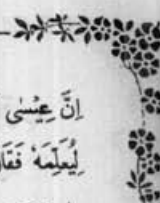 إِنَّ عِيْسٰى
لِيُعَلِّمَهُ فَقَالَ